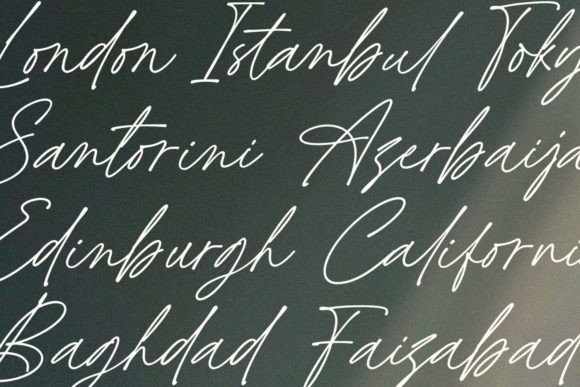 London Istanbul Toky
Santorini Azerbaija
Edinburgh Californi
Baghdad Faizabad